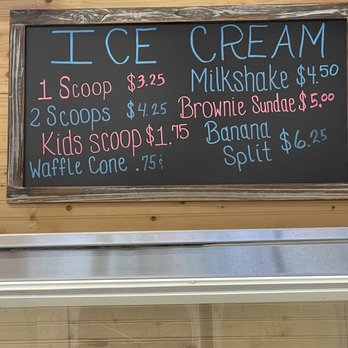 ICE CREAM
1 Scoop $3.25
2 Scoops $4.25
Kids Scoop $1.75
Waffle Cone .75¢
Milkshake $4.50
Brownie Sundae $5.00
Banana
Split $6.25